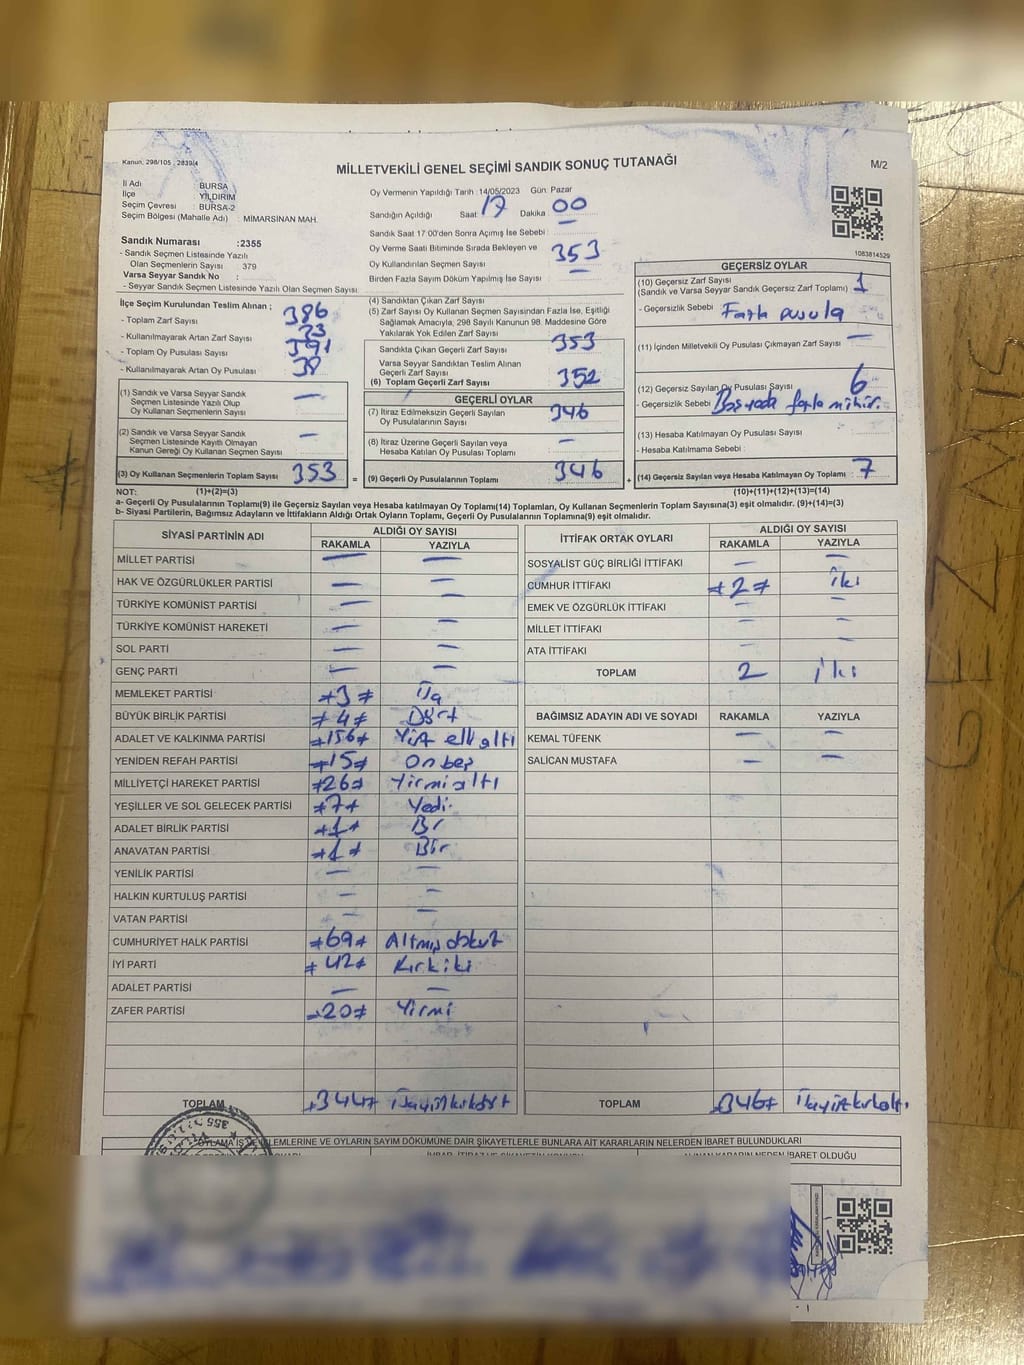 Kanun, 298/105 , 2839/4
MİLLETVEKİLİ GENEL SEÇİMİ SANDIK SONUÇ TUTANAĞI
M/2
İl Adı BURSA
İlçe YILDIRIM
Seçim Çevresi : BURSA-2
Seçim Bölgesi (Mahalle Adı) : MİMARSİNAN MAH.
Oy Vermenin Yapıldığı Tarih : 14/05/2023 Gün: Pazar
Sandığın Açıldığı Saat 17 Dakika 00
Sandık Saat 17:00'den Sonra Açımış İse Sebebi : —
Oy Verme Saati Bitiminde Sırada Bekleyen ve
Oy Kullandırılan Seçmen Sayısı 353
Birden Fazla Sayım Döküm Yapılmış İse Sayısı : —
1083814529
Sandık Numarası :2355
- Sandık Seçmen Listesinde Yazılı
Olan Seçmenlerin Sayısı 379
Varsa Seyyar Sandık No :
- Seyyar Sandık Seçmen Listesinde Yazılı Olan Seçmen Sayısı:
İlçe Seçim Kurulundan Teslim Alınan ;
- Toplam Zarf Sayısı 386
- Kullanılmayarak Artan Zarf Sayısı 33
- Toplam Oy Pusulası Sayısı 391
- Kullanılmayarak Artan Oy Pusulası 38
(1) Sandık ve Varsa Seyyar Sandık
Seçmen Listesinde Yazılı Olup
Oy Kullanan Seçmenlerin Sayısı —
(2) Sandık ve Varsa Seyyar Sandık
Seçmen Listesinde Kayıtlı Olmayan
Kanun Gereği Oy Kullanan Seçmen Sayısı —
(3) Oy Kullanan Seçmenlerin Toplam Sayısı 353
(4) Sandıktan Çıkan Zarf Sayısı
(5) Zarf Sayısı Oy Kullanan Seçmen Sayısından Fazla İse, Eşitliği
Sağlamak Amacıyla, 298 Sayılı Kanunun 98. Maddesine Göre
Yakılarak Yok Edilen Zarf Sayısı
Sandıkta Çıkan Geçerli Zarf Sayısı 353
Varsa Seyyar Sandıktan Teslim Alınan
Geçerli Zarf Sayısı
(6) Toplam Geçerli Zarf Sayısı 352
GEÇERLİ OYLAR
(7) İtiraz Edilmeksizin Geçerli Sayılan
Oy Pusulalarının Sayısı 346
(8) İtiraz Üzerine Geçerli Sayılan veya
Hesaba Katılan Oy Pusulası Toplamı —
= (9) Geçerli Oy Pusulalarının Toplamı 346
GEÇERSİZ OYLAR
(10) Geçersiz Zarf Sayısı
(Sandık ve Varsa Seyyar Sandık Geçersiz Zarf Toplamı) 1
- Geçersizlik Sebebi : Fazla pusula
(11) İçinden Milletvekili Oy Pusulası Çıkmayan Zarf Sayısı —
(12) Geçersiz Sayılan Oy Pusulası Sayısı 6
- Geçersizlik Sebebi : fazla mühür.
(13) Hesaba Katılmayan Oy Pusulası Sayısı :
- Hesaba Katılmama Sebebi :
+ (14) Geçersiz Sayılan veya Hesaba Katılmayan Oy Toplamı : 7
NOT: (1)+(2)=(3) (10)+(11)+(12)+(13)=(14)
a- Geçerli Oy Pusulalarının Toplamı(9) ile Geçersiz Sayılan veya Hesaba Katılmayan Oy Toplamı(14) Toplamları, Oy Kullanan Seçmenlerin Toplam Sayısına(3) eşit olmalıdır. (9)+(14)=(3)
b- Siyasi Partilerin, Bağımsız Adayların ve İttifakların Aldığı Oyların Toplamı, Geçerli Oy Pusulalarının Toplamına(9) eşit olmalıdır.
SİYASİ PARTİNİN ADI ALDIĞI OY SAYISI
RAKAMLA YAZIYLA
MİLLET PARTİSİ — —
HAK VE ÖZGÜRLÜKLER PARTİSİ — —
TÜRKİYE KOMÜNİST PARTİSİ — —
TÜRKİYE KOMÜNİST HAREKETİ — —
SOL PARTİ — —
GENÇ PARTİ — —
MEMLEKET PARTİSİ ≠3≠ Üç
BÜYÜK BİRLİK PARTİSİ ≠4≠ Dört
ADALET VE KALKINMA PARTİSİ ≠156≠ Yüz elli altı
YENİDEN REFAH PARTİSİ ≠15≠ On beş
MİLLİYETÇİ HAREKET PARTİSİ ≠26≠ Yirmi altı
YEŞİLLER VE SOL GELECEK PARTİSİ ≠7≠ Yedi
ADALET BİRLİK PARTİSİ ≠1≠ Bir
ANAVATAN PARTİSİ ≠1≠ Bir
YENİLİK PARTİSİ — —
HALKIN KURTULUŞ PARTİSİ — —
VATAN PARTİSİ — —
CUMHURİYET HALK PARTİSİ ≠69≠ Altmış dokuz
İYİ PARTİ ≠42≠ Kırk iki
ADALET PARTİSİ — —
ZAFER PARTİSİ ≠20≠ Yirmi
TOPLAM ≠344≠ Üçyüzkırkdört
İTTİFAK ORTAK OYLARI ALDIĞI OY SAYISI
RAKAMLA YAZIYLA
SOSYALİST GÜÇ BİRLİĞİ İTTİFAKI — —
CUMHUR İTTİFAKI ≠2≠ iki
EMEK VE ÖZGÜRLÜK İTTİFAKI — —
MİLLET İTTİFAKI — —
ATA İTTİFAKI — —
TOPLAM 2 iki
BAĞIMSIZ ADAYIN ADI VE SOYADI RAKAMLA YAZIYLA
KEMAL TÜFENK — —
SALİCAN MUSTAFA — —
TOPLAM ≠346≠ Üçyüzkırkaltı
OYLAMA İŞ VE İŞLEMLERİNE VE OYLARIN SAYIM DÖKÜMÜNE DAİR ŞİKAYETLERLE BUNLARA AİT KARARLARIN NELERDEN İBARET BULUNDUKLARI
İHBAR, İTİRAZ VE ŞİKAYETİN KONUSU ALINAN KARARIN NEDEN İBARET OLDUĞU